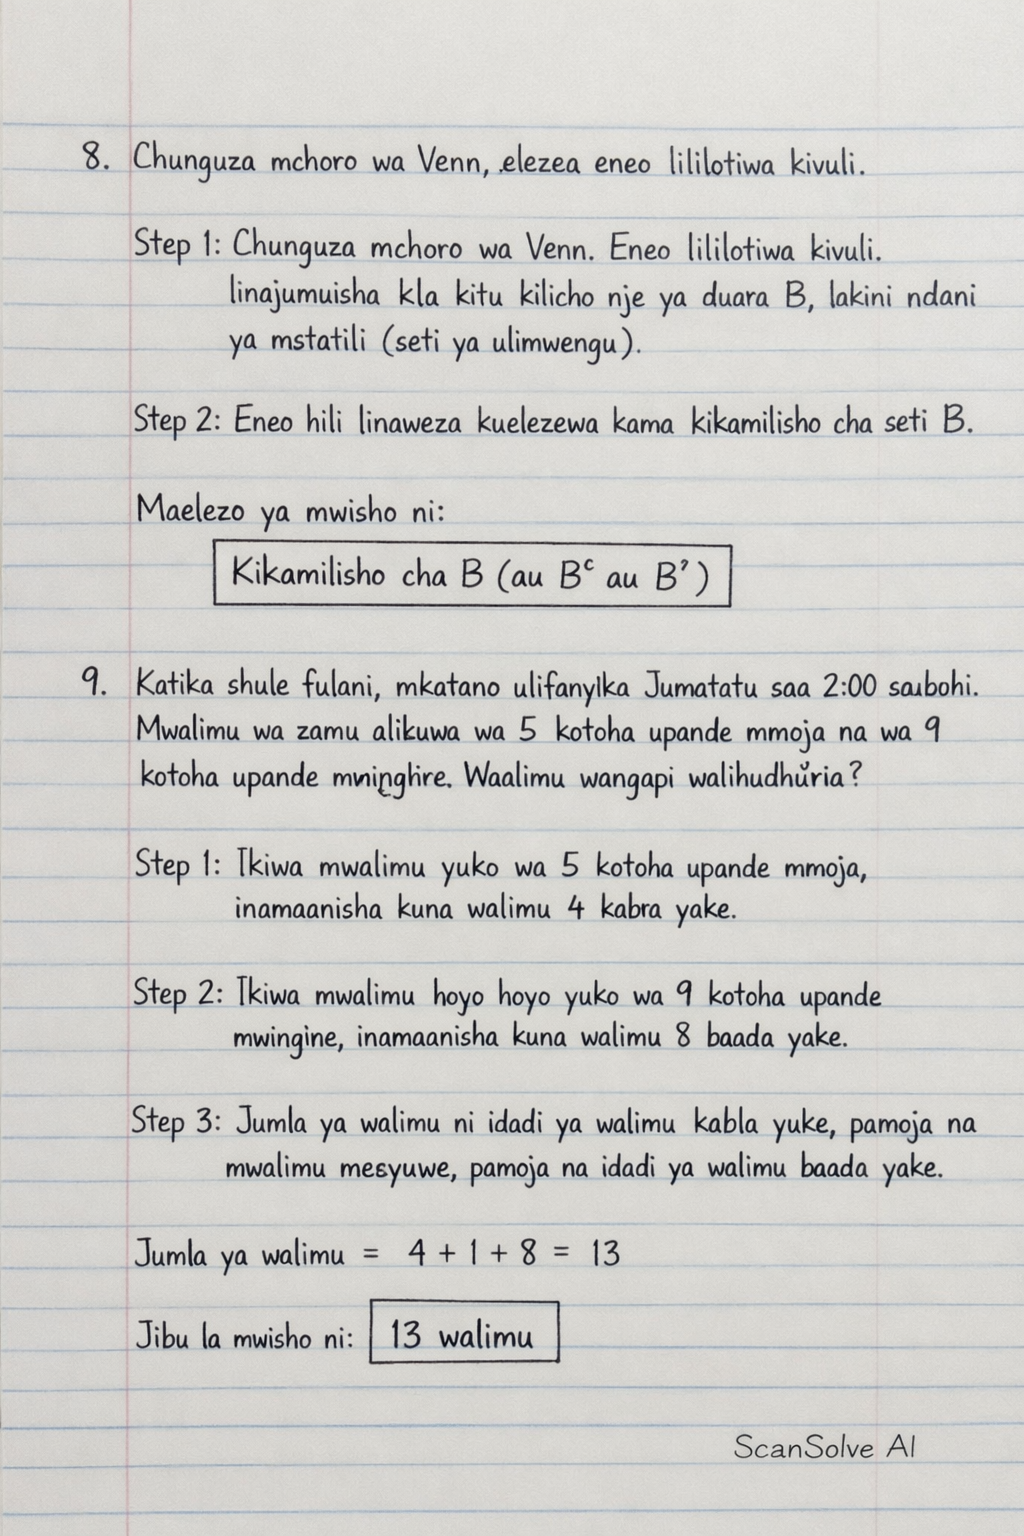 8. Chunguza mchoro wa Venn, elezea eneo lililotiwa kivuli.
Step 1: Chunguza mchoro wa Venn. Eneo lililotiwa kivuli.
linajumuisha kla kitu kilicho nje ya duara B, lakini ndani
ya mstatili (seti ya ulimwengu).
Step 2: Eneo hili linaweza kuelezewa kama kikamilisho cha seti B.
Maelezo ya mwisho ni:
Kikamilisho cha B (au Bᶜ au B’)
9. Katika shule fulani, mkatano ulifanyika Jumatatu saa 2:00
Mwalimu wa zamu alikuwa wa 5 kotoha upande mmoja na wa 9
kotoha upande Waalimu wangapi walihudhŭria?
Step 1: Ikiwa mwalimu yuko wa 5 kotoha upande mmoja,
inamaanisha kuna walimu 4 kabra yake.
Step 2: Ikiwa mwalimu hoyo hoyo yuko wa 9 kotoha upande
mwingine, inamaanisha kuna walimu 8 baada yake.
Step 3: Jumla ya walimu ni idadi ya walimu kabla yuke, pamoja na
mwalimu mesyuwe, pamoja na idadi ya walimu baada yake.
Jumla ya walimu = 4 + 1 + 8 = 13
Jibu la mwisho ni: 13 walimu
ScanSolve AI